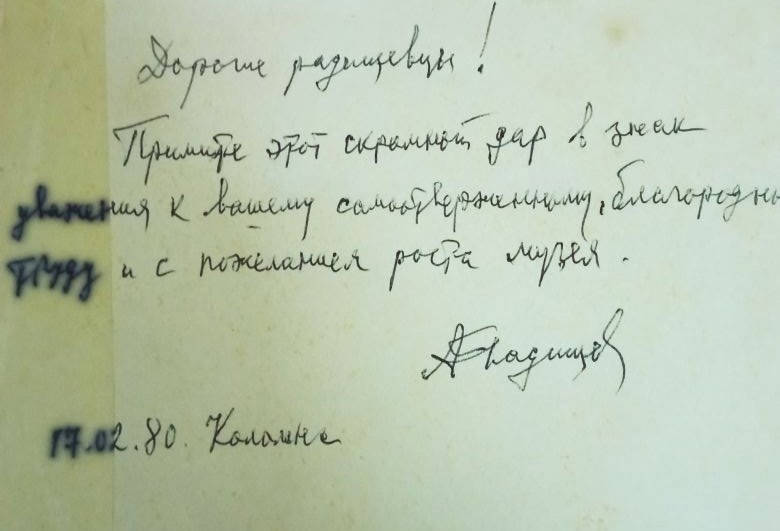 Дорогие радищевцы!
Примите этот скромный дар в знак
уважения к вашему самоотверженному, благородн
труду и с пожеланием роста музея.
А Радищев
17.02.80. Коломна